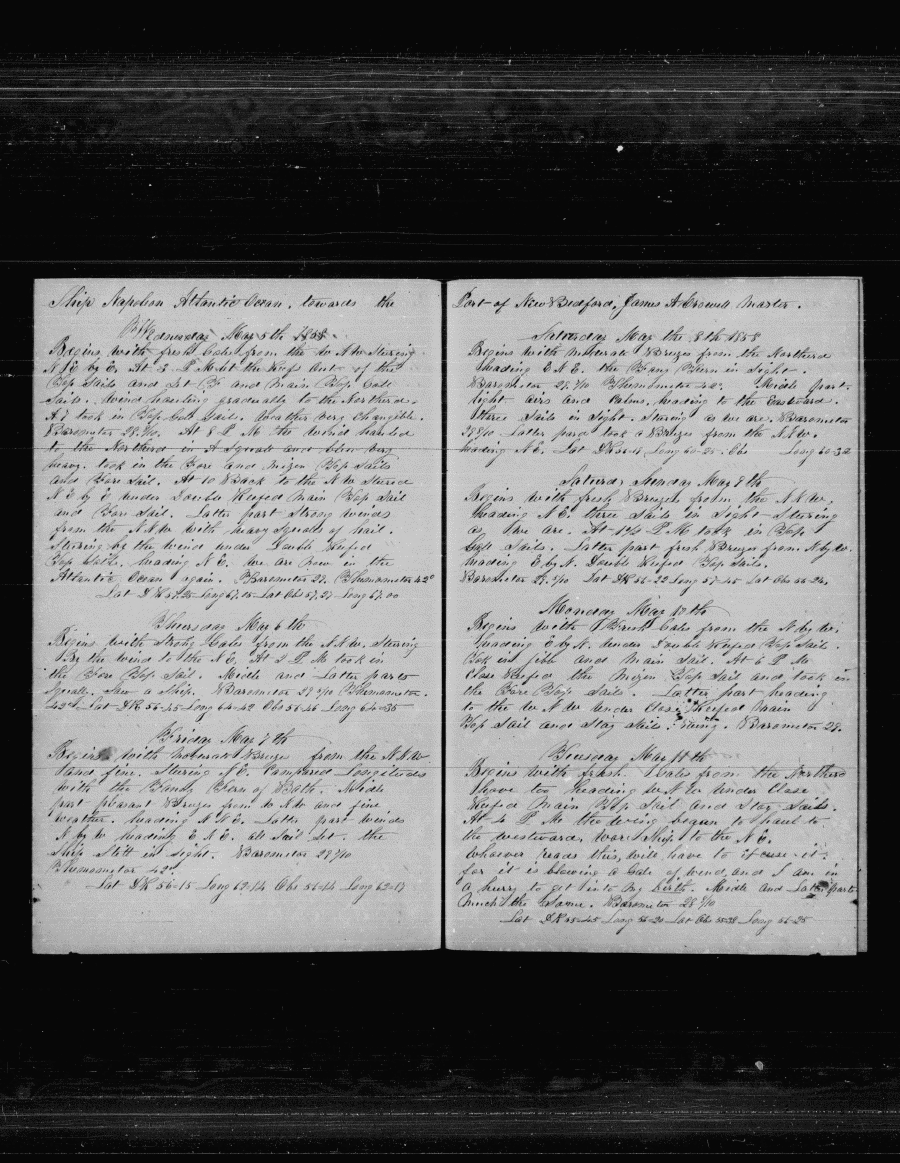 Ship Napoleon Atlantic Ocean. towards the
Wednesday May 5th 1858
Begins with fresh Gales from the W.N.W. Stering
N.E. by E. At 3 P M let the reefs out of the
Top Sails and set Fore and Main Top Gall
Sails. wind hauling gradually to the Northerd.
At 7 took in Top Gall Sail. Weather very changible.
Barometer At 8 P M the wind hauled
to the Northerd in A Squall and blew very
heavy. took in the Fore and Mizen Top Sails
and Fore Sail. At 10 Back to the N.W. Stered
N.E. by E under Double Reefed Main Top Sail
and Fore Sail. Latter part Strong winds
from the N.N.W with heavy Squalls of hail.
Stering by the wind under Double Reefed
Top Sails. heading N.E. We are now in the
Atlantic Ocean again. Barometer 29. Thermometer 42°
Lat D R 57,25 Long 67,15 Lat Obs 57,27 Long 67,00
Thursday May 6th
Begins with Strong Gales from the N.N.W. Stering
By the wind to the N.E. At 2 P.M. took in
the Fore Top Sail. Midle and Latter parts
Squally. Saw a Ship. Barometer 29 Thermometer
42° Lat D R 56-45 Long 64-42 Obs 56-46 Long 64-35
Friday May 7th
Begins with Moderate Breezes from the N.N.W
and fine. Stering N.E. Compared Longitudes
with the Barque of Bath. Midle
part pleasant Breezes from N.N.W and fine
weather. heading N.N.E. Latter part winds
N by W heading E N.E. all Sail Set. the
Ship Still in Sight. Barometer 28 9/10
Thermometer 42°
Lat D R 56-15 Long 62-14 Obs 56-14 Long 62-17
Port of New Bedford, James A Crowell Master.
Saturday May the 8th 1858
Begins with Moderate Breezes from the Northerd
heading E.N.E. the in Sight.
Barometer Thermometer 42°. Midle part
light airs and Calms, heading to the Eastward.
three Sails in Sight. Stering as we are. Barometer
Latter part took a Breeze from the N.N.W.
heading N.E. Lat D R Long 60-25. Obs Long 60-30
Sunday May 9th
Begins with fresh Breezes from the N.N.W.
heading N.E. three Sails in Sight Stering
as we are. At P.M. took in Top
Gall Sails. Latter part fresh Breezes from N by W.
heading E by N. Double Reefed Top Sails.
Barometer Lat D R 56-22 Long 57-45 Lat Obs 56-24
Monday May 10th
Begins with Fresh Gales from the N by W.
heading E by N. under Double Reefed Top Sails.
Took in jibb and Main Sail. At 6 P. M.
Close Reefed the Mizen Top Sail and took in
the Fore Top Sails. Latter part heading
to the W.N.W under Close Reefed Main
Top Sail and Stay Sails. Barometer 29.
Teusday May 11th
Begins with fresh Gales from the Northerd
have too heading W.N.W under Close
Reefed Main Top Sail and Stay Sails.
At 4 P M the wing began to haul to
the westward, wore Ship to the N.E.
Whoever reads this, will have to excuse it.
for it is blowing a Gale of wind, and I am in
a hurry to get into my birth. Midle and Latter parts
much the Same. Barometer 28 9/10
Lat D R 55-45 Long 56-20 Lat Obs 55-38 Long 56-25